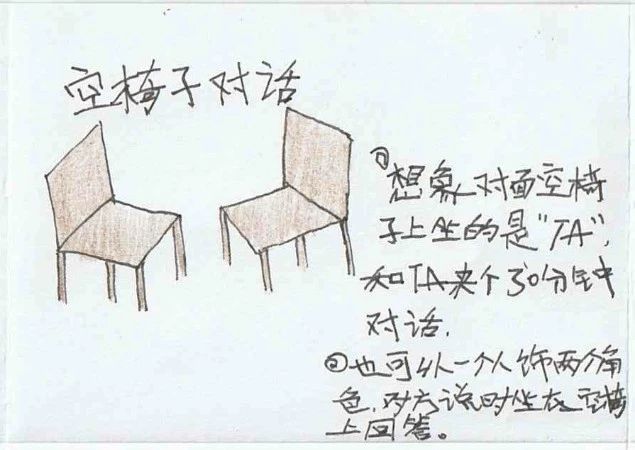 空椅子对话
①想象对面空椅
子上坐的是“TA”，
和TA来个30分钟
对话.
②也可以一个人饰两个角
色，对方说时坐在空椅
上回答。